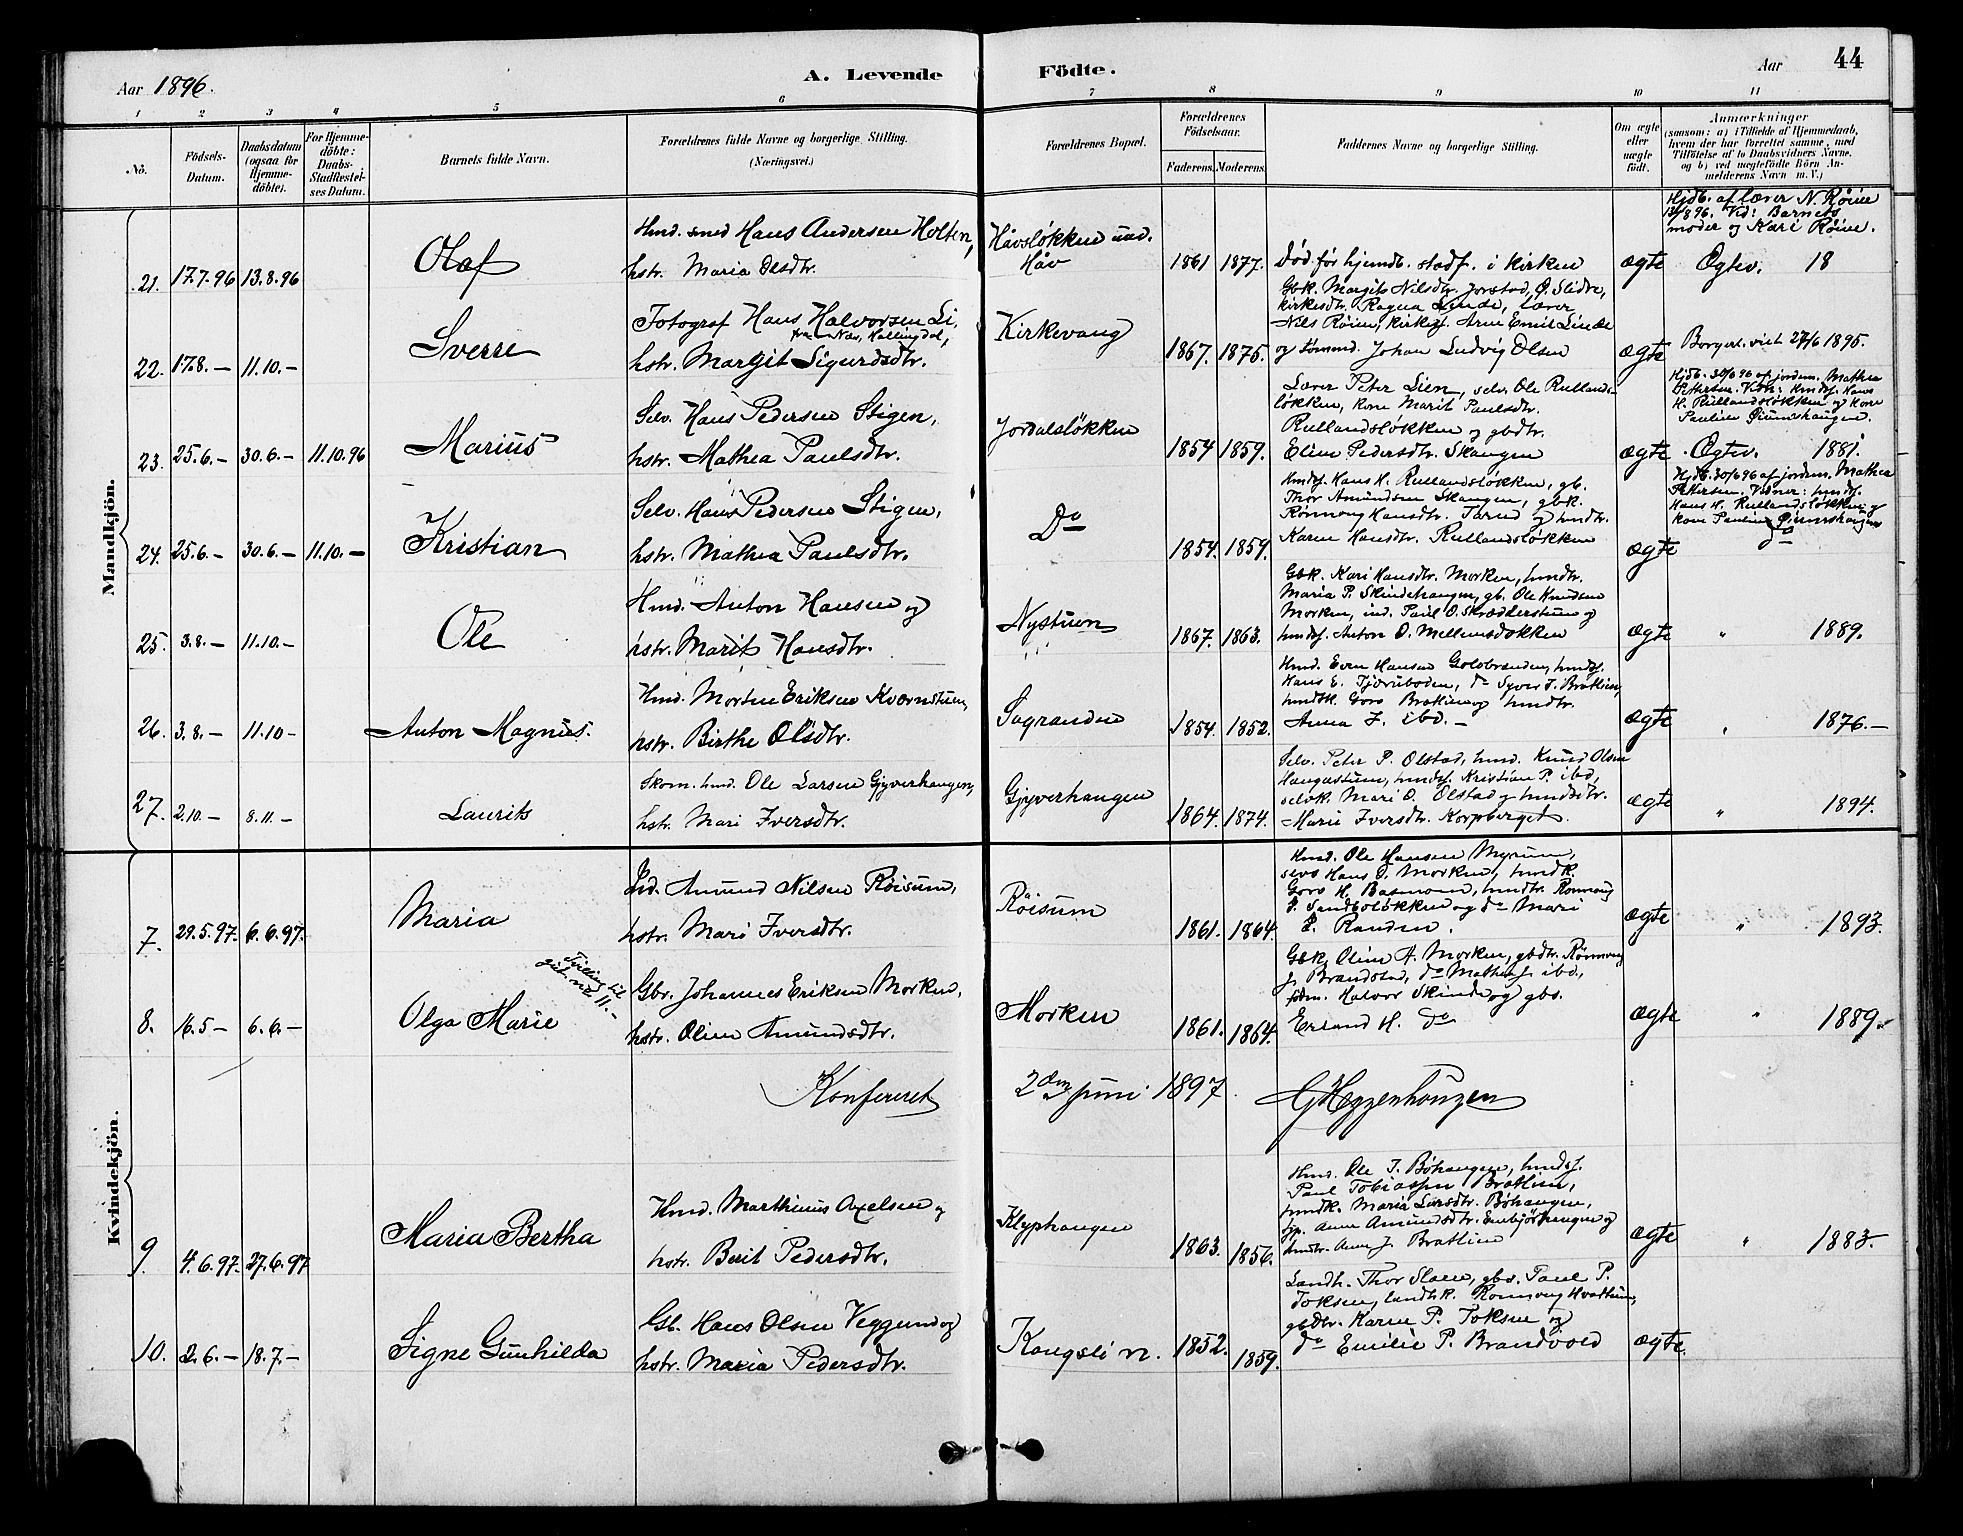 Aar 1896.
A. Levende Födte.
Aar
44
1 2 3 4 5 6 7 8 9 10 11
No.
Födsels-Datum.
Daabsdatum (ogsaa för Hjemmedöbte).
For Hjemmedöbte: Daabs-Stadfæstelses Datum.
Barnets fulde Navn.
Forældrenes fulde Navne og borgerlige Stilling.
(Næringsvei.)
Forældrenes Bopæl.
Forældrenes Födselsaar.
Faderens. Moderens.
Faddernes Navne og borgerlige Stilling.
Om ægte eller uægte födt.
Anmærkninger
(saasom: a) i Tilfælde af Hjemmedaab,
hvem der har forrettet samme, med
Tilföielse af to Daabsvidners Navne,
og b) ved uægtefödte Börn An-
melderens Navn m. V.)
Mandkjön.
Hjdb. af lærer N. Røine
13/8 96. Vid: Barnets
moder og Kari Røine.
21. 17.7.96 13.8.96 Olaf
Hmd. smed Hans Andersen Holten,
hstr. Maria Olsdtr.
Håvsløkken und.
Håv
1861 1877. Død før hjemdb. stadf. i kirken ægte Ægtev. 18
22. 17.8.— 11.10.— Sverre
Fotograf Hans Halvorsen Li,
fra Næs, Hallingdal,
hstr. Margit Sigurdsdtr.
Kirkevang
1867. 1875.
Gbk. Margit Nilsdtr. Jorstad, Ø. Slidre,
kirkesdtr. Ragna Linde, lærer
Nils Røien, kirkes. Arne Emil Linde
og tømmd. Johan Ludvig Olsen
ægte Borgerl. viet 27/6 1895.
23. 25.6.— 30.6.— 11.10.96 Marius
Selv. Hans Pedersen Stigen,
hstr. Mathea Paulsdtr.
Jordalsløkken
1854 1859.
Lærer Peter Lien, selv. Ole Rullands-
løkken, kone Marit Paulsdtr.
Rullandsløkken og gbdtr.
Eline Pedersdtr. Skangen
ægte
Hjdb. 30/6 96 af jordem. Mathea
Pettersen. Vidn: hmdsf. Hans
H. Rullandsløkken og kone
Pauline
Ægtev. 1881.
24. 25.6.— 30.6.— 11.10.— Kristian
Selv. Hans Pedersen Stigen,
hstr. Mathea Paulsdtr.
Do
1854. 1859.
Hmdsf. Hans H. Rullandsløkken, gb.
Thor Amundsen Skangen, gbk.
Rønnoug Hansdtr. Tarud og hmdtr.
Karen Hansdtr. Rullandsløkken
ægte
Hjdb. 30/6 96 af jordem. Mathea
Pettersen. Vidner: hmdsf.
Hans H. Rullandsløkken og
kone Pauline
do
25. 3.8.— 11.10.— Ole
Hmd. Anton Hansen og
hstr. Marit Hansdtr.
Nystuen
1867. 1863.
Gbk. Kari Hansdtr. Morken, hmdtr.
Maria P. Skindehaugen, gb. Ole Knudsen
Morken, ind. Paul O. Skrædderstuen og
hmdsf. Anton O. Mellemsdokken
ægte " 1889.
26. 3.8.— 11.10.— Anton Magnus.
Hmd. Morten Eriksen Kværnstuen,
hstr. Birthe Olsdtr.
Sagranden
1854. 1852.
Hmd. Even Hansen Golobranden, hmdsf.
Hans E. Tjernboden, do Syver J. Bratlien,
hmdk. Goro Bratlien og hmdtr.
Anna J. ibd.—
ægte " 1876.—
27. 2.10.— 8.11.— Laurits
Skom. hmd. Ole Larsen Gjyverhaugen,
hstr. Mari Iversdtr.
Gjyverhaugen
1864. 1874.
Selv. Peter P. Olstad, hmd. Knud Olsen
Haugastuen, hmdsf. Kristian P. ibd,
selvk. Mari O. Olstad og hmdsdtr.
Marie Iversdtr. Korpberget.
ægte " 1894.
Kvindekjön.
7. 29.5.97. 6.6.97. Maria
Ind. Amund Nilsen Røisum,
hstr. Mari Iversdtr.
Røisum
1861. 1864.
Hmd. Ole Hansen Myrum,
selvs Hans J. Morken, hmdk.
Goro H. Basmoen, hmdtr. Rønnoug
P. Sandboløkken og do Mari
E. Randen.
ægte " 1893.
8. 16.5— 6.6.— Olga Marie
Tvilling til
gut no 11.—
Gbr. Johannes Eriksen Morken,
hstr. Oline Amundsdtr.
Morken
1861. 1864.
Gbk. Oline A. Morken, gbdtr. Rønnoug
J. Brandstad, do Mathea J. ibd,
fdm. Halvor Skinde og gbs.
Erland H. do
ægte " 1889.
Konfereret 2den juni 1897
G Heggenhougen
9. 4.6.97. 27.6.97 Maria Bertha
Hmd. Marthinus Axelsen og
hstr. Berit Pedersdtr.
Klyphaugen
1863. 1856.
Hmd. Ole J. Bøhaugen, hmdsf.
Paul Tobiassen Bratlien,
hmdk. Maria Larsdtr. Bøhaugen,
Anne Amundsdtr. Embjørhaugen og
hmdtr. Anne J. Bratlien
ægte " 1883.
10. 2.6.— 18.7.— Signe Gunhilda
Gb. Hans Olsen Veggum og
hstr. Maria Pedersdtr.
Kongsli n.
1852. 1859.
Landh. Thor Slaen, gbs. Paul P.
Toksen, landhk. Rønnoug Hvattum,
gbdtr. Karen P. Toksen og
do Emilie P. Brandvold
ægte.